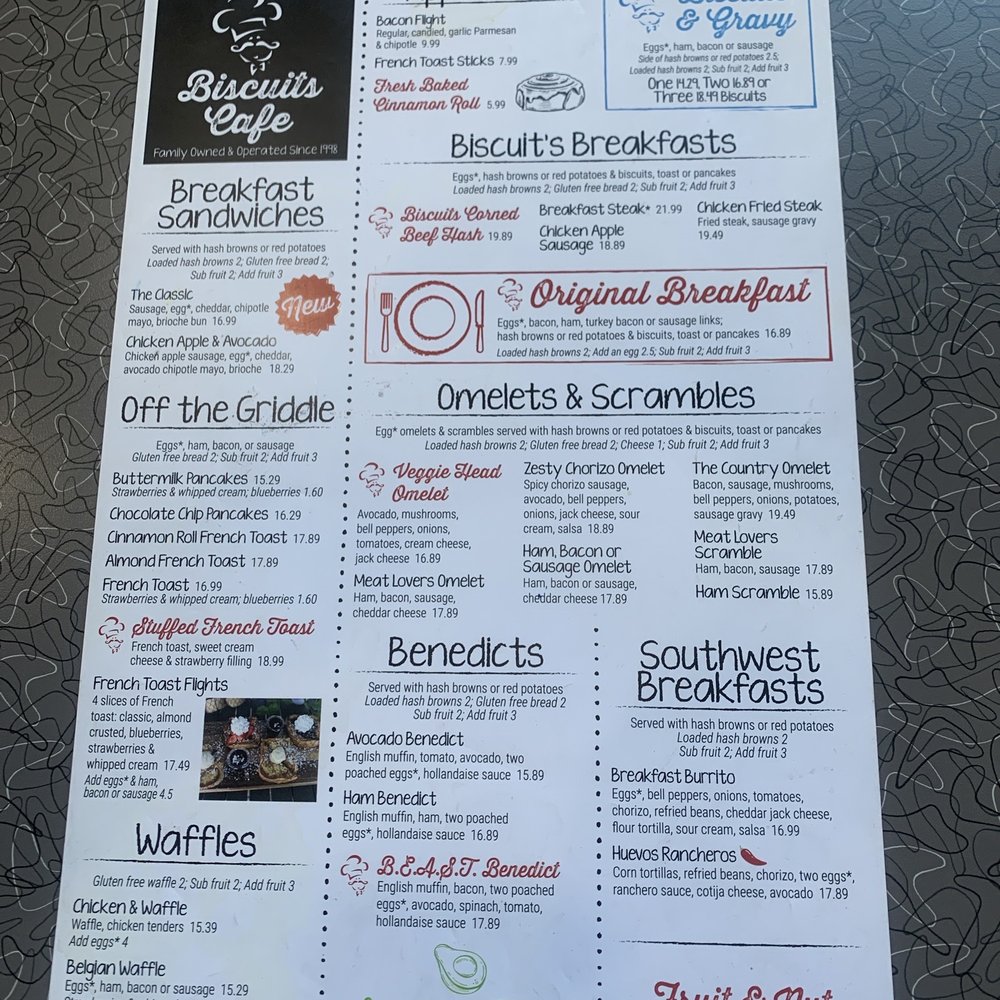 Biscuits
Cafe
Family Owned & Operated Since 1998
Breakfast
Sandwiches
Served with hash browns or red potatoes
Loaded hash browns 2; Gluten free bread 2;
Sub fruit 2; Add fruit 3
The Classic
Sausage, egg*, cheddar, chipotle
mayo, brioche bun 16.99
New
Chicken Apple & Avocado
Chicken apple sausage, egg*, cheddar,
avocado chipotle mayo, brioche 18.29
Off the Griddle
Eggs*, ham, bacon, or sausage
Gluten free bread 2; Sub fruit 2; Add fruit 3
Buttermilk Pancakes 15.29
Strawberries & whipped cream; blueberries 1.60
Chocolate Chip Pancakes 16.29
Cinnamon Roll French Toast 17.89
Almond French Toast 17.89
French Toast 16.99
Strawberries & whipped cream; blueberries 1.60
Stuffed French Toast
French toast, sweet cream
cheese & strawberry filling 18.99
French Toast Flights
4 slices of French
toast: classic, almond
crusted, blueberries,
strawberries &
whipped cream 17.49
Add eggs* & ham,
bacon or sausage 4.5
Waffles
Gluten free waffle 2; Sub fruit 2; Add fruit 3
Chicken & Waffle
Waffle, chicken tenders 15.39
Add eggs* 4
Belgian Waffle
Eggs*, ham, bacon or sausage 15.29
Bacon Flight
Regular, candied, garlic Parmesan
& chipotle 9.99
French Toast Sticks 7.99
Fresh Baked
Cinnamon Roll 5.99
& Gravy
Eggs*, ham, bacon or sausage
Side of hash browns or red potatoes 2.5;
Loaded hash browns 2; Sub fruit 2; Add fruit 3
One 14.29, Two 16.89 or
Three 18.49 Biscuits
Biscuit's Breakfasts
Eggs*, hash browns or red potatoes & biscuits, toast or pancakes
Loaded hash browns 2; Gluten free bread 2; Sub fruit 2; Add fruit 3
Biscuits Corned
Beef Hash 19.89
Breakfast Steak* 21.99
Chicken Apple
Sausage 18.89
Chicken Fried Steak
Fried steak, sausage gravy
19.49
Original Breakfast
Eggs*, bacon, ham, turkey bacon or sausage links;
hash browns or red potatoes & biscuits, toast or pancakes 16.89
Loaded hash browns 2; Add an egg 2.5; Sub fruit 2; Add fruit 3
Omelets & Scrambles
Egg* omelets & scrambles served with hash browns or red potatoes & biscuits, toast or pancakes
Loaded hash browns 2; Gluten free bread 2; Cheese 1; Sub fruit 2; Add fruit 3
Veggie Head
Omelet
Avocado, mushrooms,
bell peppers, onions,
tomatoes, cream cheese,
jack cheese 16.89
Meat Lovers Omelet
Ham, bacon, sausage,
cheddar cheese 17.89
Zesty Chorizo Omelet
Spicy chorizo sausage,
avocado, bell peppers,
onions, jack cheese, sour
cream, salsa 18.89
Ham, Bacon or
Sausage Omelet
Ham, bacon or sausage,
cheddar cheese 17.89
The Country Omelet
Bacon, sausage, mushrooms,
bell peppers, onions, potatoes,
sausage gravy 19.49
Meat Lovers
Scramble
Ham, bacon, sausage 17.89
Ham Scramble 15.89
Benedicts
Served with hash browns or red potatoes
Loaded hash browns 2; Gluten free bread 2
Sub fruit 2; Add fruit 3
Avocado Benedict
English muffin, tomato, avocado, two
poached eggs*, hollandaise sauce 15.89
Ham Benedict
English muffin, ham, two poached
eggs*, hollandaise sauce 16.89
B.E.A.S.T. Benedict
English muffin, bacon, two poached
eggs*, avocado, spinach, tomato,
hollandaise sauce 17.89
Southwest
Breakfasts
Served with hash browns or red potatoes
Loaded hash browns 2
Sub fruit 2; Add fruit 3
Breakfast Burrito
Eggs*, bell peppers, onions, tomatoes,
chorizo, refried beans, cheddar jack cheese,
flour tortilla, sour cream, salsa 16.99
Huevos Rancheros
Corn tortillas, refried beans, chorizo, two eggs*,
ranchero sauce, cotija cheese, avocado 17.89
Fruit & Nut